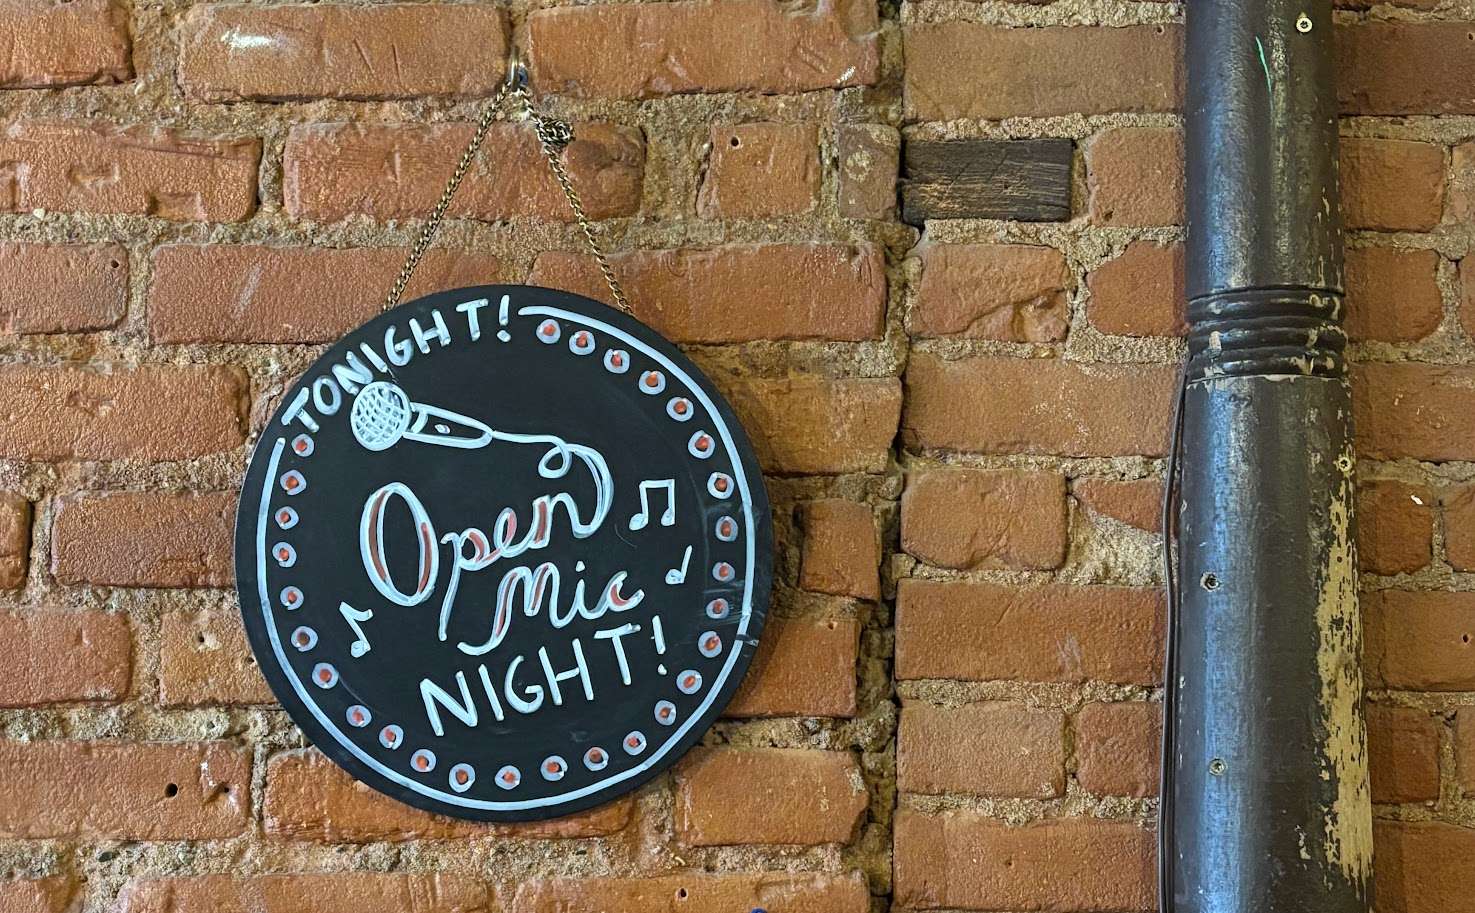 TONIGHT!
Open
Mic
NIGHT!